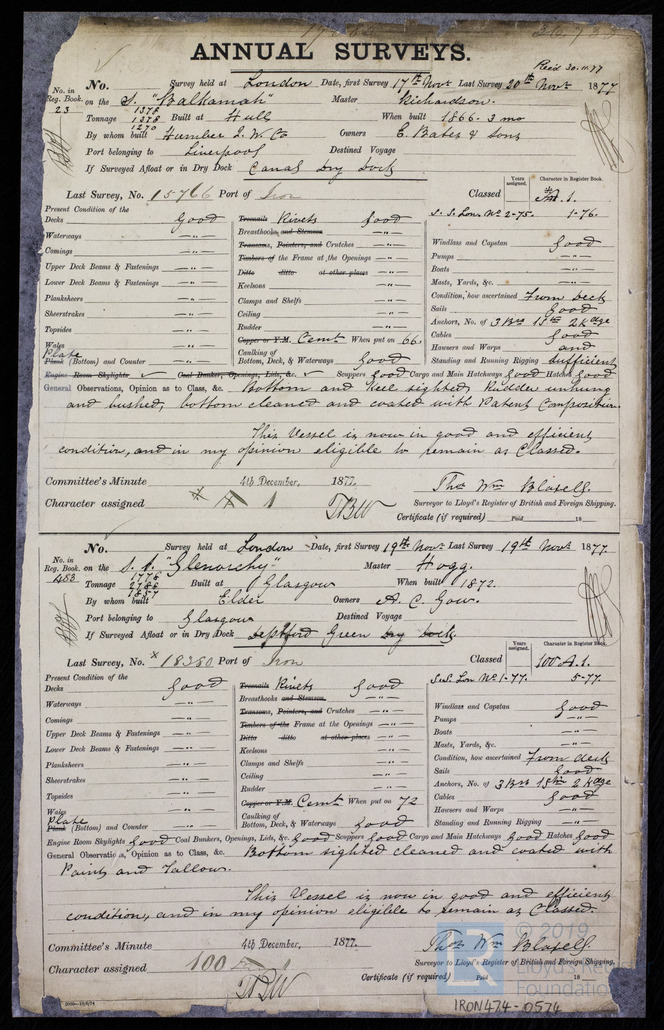 ANNUAL SURVEYS.
Rec'd 30.11.77
No. in Reg. Book. No. Survey held at London Date, first Survey 17th Novr Last Survey 20th Novr 1877
23 on the S. "Balkamah" Master Richardson.
1378
Tonnage 1378 Built at Hull When built 1866. 3 mo
1270
By whom built Humber I. W. Co Owners E. Bates & Sons
Port belonging to Liverpool Destined Voyage
If Surveyed Afloat or in Dry Dock Canal Dry Dock
Years assigned. Character in Register Book.
Last Survey, No. 15766 Port of Iron Classed A 1.
S. S. Lon. No 2-75. 1-76.
Present Condition of the
Decks Good
Waterways — " —
Comings — " —
Upper Deck Beams & Fastenings — " —
Lower Deck Beams & Fastenings — " —
Planksheers — " —
Sheerstrakes — " —
Topsides — " —
Wales — " —
Plate
Plank (Bottom) and Counter — " —
Treenails Rivets Good
Breasthooks and Stemson — " —
Transoms, Pointers, and Crutches — " —
Timbers of the Frame at the Openings — " —
Ditto ditto at other places — " —
Keelsons — " —
Clamps and Shelfs — " —
Ceiling — " —
Rudder — " —
Copper or Y.M. Cemt When put on 66
Caulking of
Bottom, Deck, & Waterways Good
Windlass and Capstan Good
Pumps — " —
Boats — " —
Masts, Yards, &c. — " —
Condition, how ascertained From deck
Sails Good
Anchors, No. of 3 Brs 1 Stm 2 Kdge
Cables Good
Hawsers and Warps and
Standing and Running Rigging Sufficient
Engine Room Skylights Coal Bunker, Openings, Lids, &c. Scuppers Good Cargo and Main Hatchways Good Hatches Good
General Observations, Opinion as to Class, &c. Bottom and Keel sighted, Rudder unhung
and bushed, bottom cleaned and coated with Patent Composition.
This Vessel is now in good and efficient
condition, and in my opinion eligible to remain as Classed.
Committee's Minute 4th December, 1877. Thos Wm Blaxell.
Character assigned A 1 TBW Surveyor to Lloyd's Register of British and Foreign Shipping.
Certificate (if required) Paid 18
No. in Reg. Book. No. Survey held at London Date, first Survey 19th Novr Last Survey 19th Novr 1877.
453 on the S. S. "Glenorchy" Master Hogg.
1778
Tonnage 2788 Built at Glasgow When built 1872.
1857
By whom built Elder Owners A. C. Gow.
Port belonging to Glasgow Destined Voyage
If Surveyed Afloat or in Dry Dock Deptford Green Dry Dock
Years assigned. Character in Register Book.
Last Survey, No. 18380 Port of Iron Classed 100 A.1.
S.S. Lon No 1-77. 5-77
Present Condition of the
Decks Good
Waterways — " —
Comings — " —
Upper Deck Beams & Fastenings — " —
Lower Deck Beams & Fastenings — " —
Planksheers — " —
Sheerstrakes — " —
Topsides — " —
Wales — " —
Plate
Plank (Bottom) and Counter — " —
Treenails Rivets Good
Breasthooks and Stemson — " —
Transoms, Pointers, and Crutches — " —
Timbers of the Frame at the Openings — " —
Ditto ditto at other places — " —
Keelsons — " —
Clamps and Shelfs — " —
Ceiling — " —
Rudder — " —
Copper or Y.M. Cemt When put on 72
Caulking of
Bottom, Deck, & Waterways Good
Windlass and Capstan Good
Pumps — " —
Boats — " —
Masts, Yards, &c. — " —
Condition, how ascertained From deck
Sails Good
Anchors, No. of 3 Brs 1 Stm 2 Kdge
Cables Good
Hawsers and Warps — " —
Standing and Running Rigging — " —
Engine Room Skylights Good Coal Bunkers, Openings, Lids, &c. Good Scuppers Good Cargo and Main Hatchways Good Hatches Good
General Observations, Opinion as to Class, &c. Bottom sighted cleaned and coated with
Paint and Tallow.
This Vessel is now in good and efficient
condition, and in my opinion eligible to remain as Classed.
Committee's Minute 4th December, 1877. Thos Wm Blaxell.
Character assigned 100 A 1 TBW Surveyor to Lloyd's Register of British and Foreign Shipping.
Certificate (if required) Paid 18
© 2019
LR Lloyd's Register
Foundation
IRON474-0574